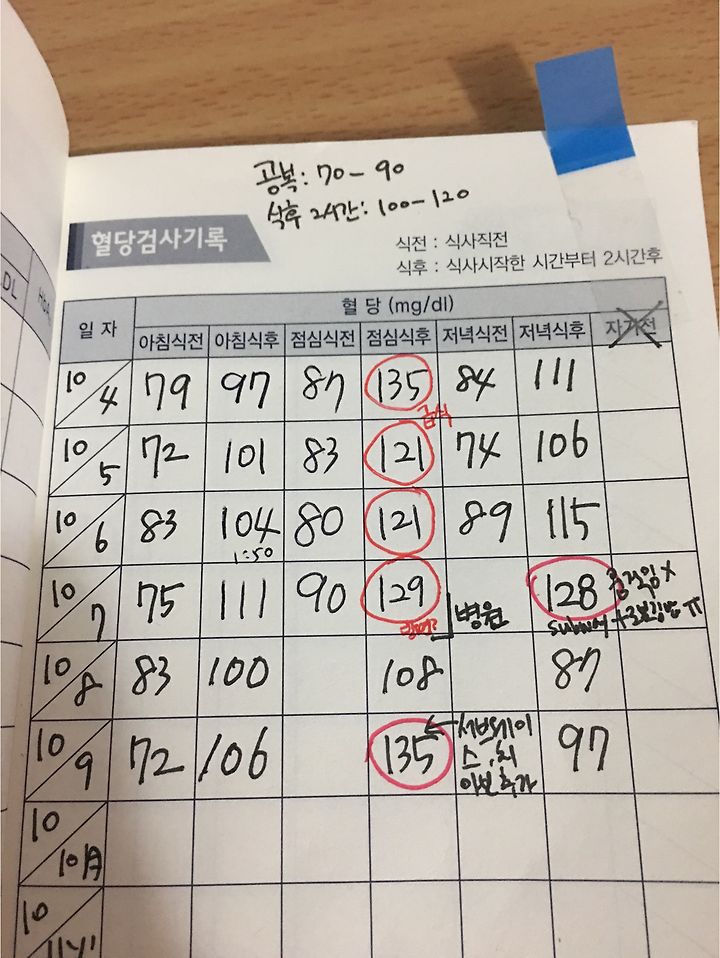 공복: 70-90
식후 2시간: 100-120
혈당검사기록
식전 : 식사직전
식후 : 식사시작한 시간부터 2시간후
DL
일 자
혈 당 (mg/dl)
아침식전 아침식후 점심식전 점심식후 저녁식전 저녁식후 자기전
10/4 79 97 87 135 84 111
급식
10/5 72 101 83 121 74 106
10/6 83 104 80 121 89 115
1:50
10/7 75 111 90 129 병원 128 움직임 X
subway +
10/8 83 100 108 87
10/9 72 106 135 ← 97
추가
10/10月
10